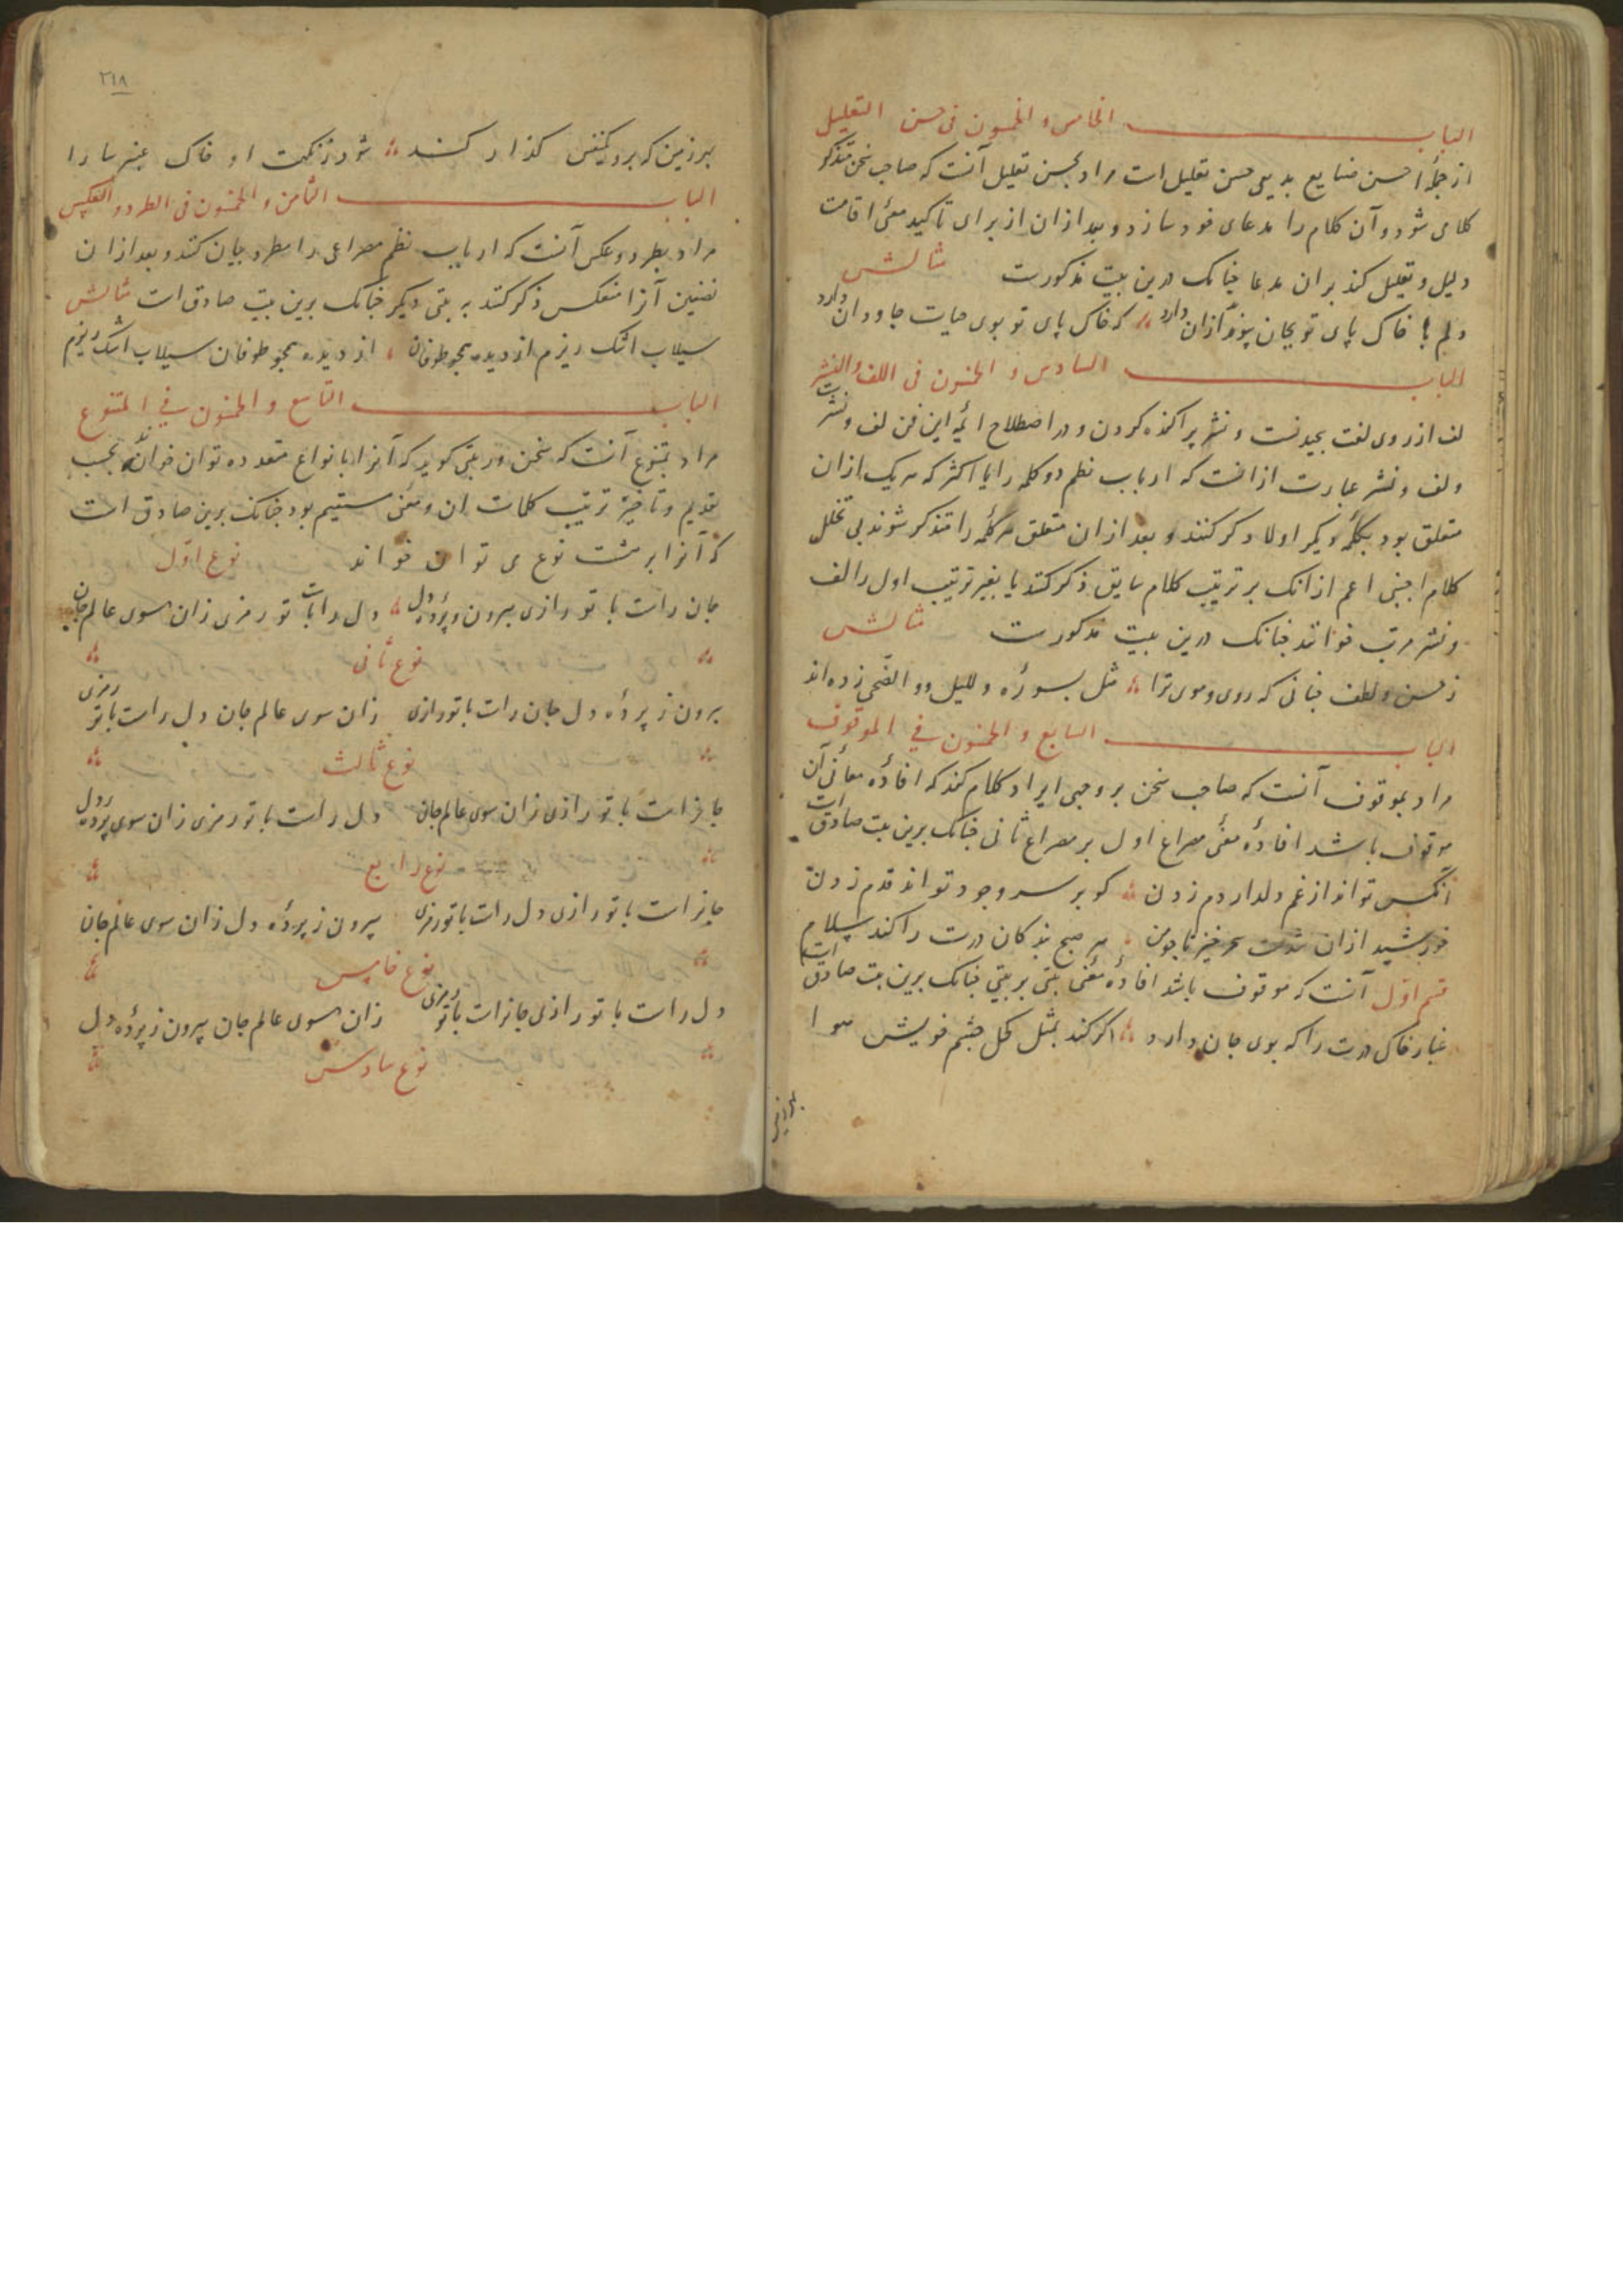 الباب الخامس و الخمسون فی حسن التعلیل
از جملهٔ احسن صنایع بدیعی حسن تعلیل است مراد بحسن تعلیل آنست که صاحب سخن متذکر
کلامی شود و آن کلام را مدعای خود سازد و بعد ازان از برای تاکید معنی اقامت
دلیل و تعلیل کند بران مدعا چنانک درین بیت مذکورست مثالش
دلم با خاک پای تو بجان پیوند ازان دارد که خاک پای تو بوی حیات جاودان دارد
الباب السادس و الخمسون فی اللف والنشر
لف از روی لغت پیچیدنست و نشر پراکنده کردن و در اصطلاح ائمهٔ این فن لف و نشرست
ولف و نشر عبارت ازانست که ارباب نظم دو کلمه را یا اکثر که هر یک ازان
متعلق بود بکلمهٔ دیگر اولا ذکر کنند و بعد ازان متعلق هر کلمه را متذکر شوند بی تخلل
کلام اجنبی اعم ازانک بر ترتیب کلام سابق ذکر کنند یا بغیر ترتیب اول را لف
و نشر مرتب خوانند چنانک درین بیت مذکورست مثالش
ز حسن و لطف چنانی که روی و موی ترا مثل بسورهٔ واللیل و والضحی زده‌اند
الباب السابع و الخمسون فی الموقوف
مراد بموقوف آنست که صاحب سخن بر وجهی ایراد کلام کند که افادهٔ معانی آن
موقوف باشد افادهٔ معنی مصراع اول بر مصراع ثانی چنانک برین بیت صادق است
آنکس تواند از غم دلدار دم زدن کو بر سر وجود تواند قدم زدن
خورشید ازان شدست سحرخیز تا چو من هر صبح بندگان درت را کند سلام
قسم اول آنست که موقوف باشد افادهٔ معنی بیتی بر بیتی چنانک برین بیت صادق است
غبار خاک درت را که بوی جان دارد اگر کند بمثل کحل چشم خویش هوا
٢١٨
برزمین که برو یکنفس گذار کند شود ز نکهت او خاک عنبر سارا
الباب الثامن و الخمسون فی الطرد و العکس
مراد بطرد و عکس آنست که ارباب نظم مصراعی را مطرد بیان کنند و بعد ازان
آنرا منعکس ذکر کنند به بیتی دیگر چنانک برین بیت صادق است مثالش
سیلاب اشک ریزم از دیده همچو طوفان از دیده همچو طوفان سیلاب اشک ریزم
الباب التاسع و الخمسون فی المتنوع
مراد بمتنوع آنست که سخن ور بیتی گوید که آنرا بانواع متعدده توان خواند بحسب
تقدیم و تاخیر ترتیب کلمات ان و معنی مستقیم بود چنانک برین صادق است
که آنرا بر هشت نوع می توان خواند نوع اول
جان راست با تو رازی بیرون ز پردهٔ دل دل راست با تو رمزی زان سوی عالم جان
نوع ثانی
برون ز پردهٔ دل جان راست با تو رازی زان سوی عالم جان دل راست با تو رمزی
نوع ثالث
جانراست با تو رازی زان سوی عالم جان دل راست با تو رمزی زان سوی پردهٔ دل
نوع رابع
جانراست با تو رازی دل راست با تو رمزی بیرون ز پردهٔ دل زان سوی عالم جان
نوع خامس
دل راست با تو رازی جانراست با تو رمزی زان سوی عالم جان بیرون ز پردهٔ دل
نوع سادس